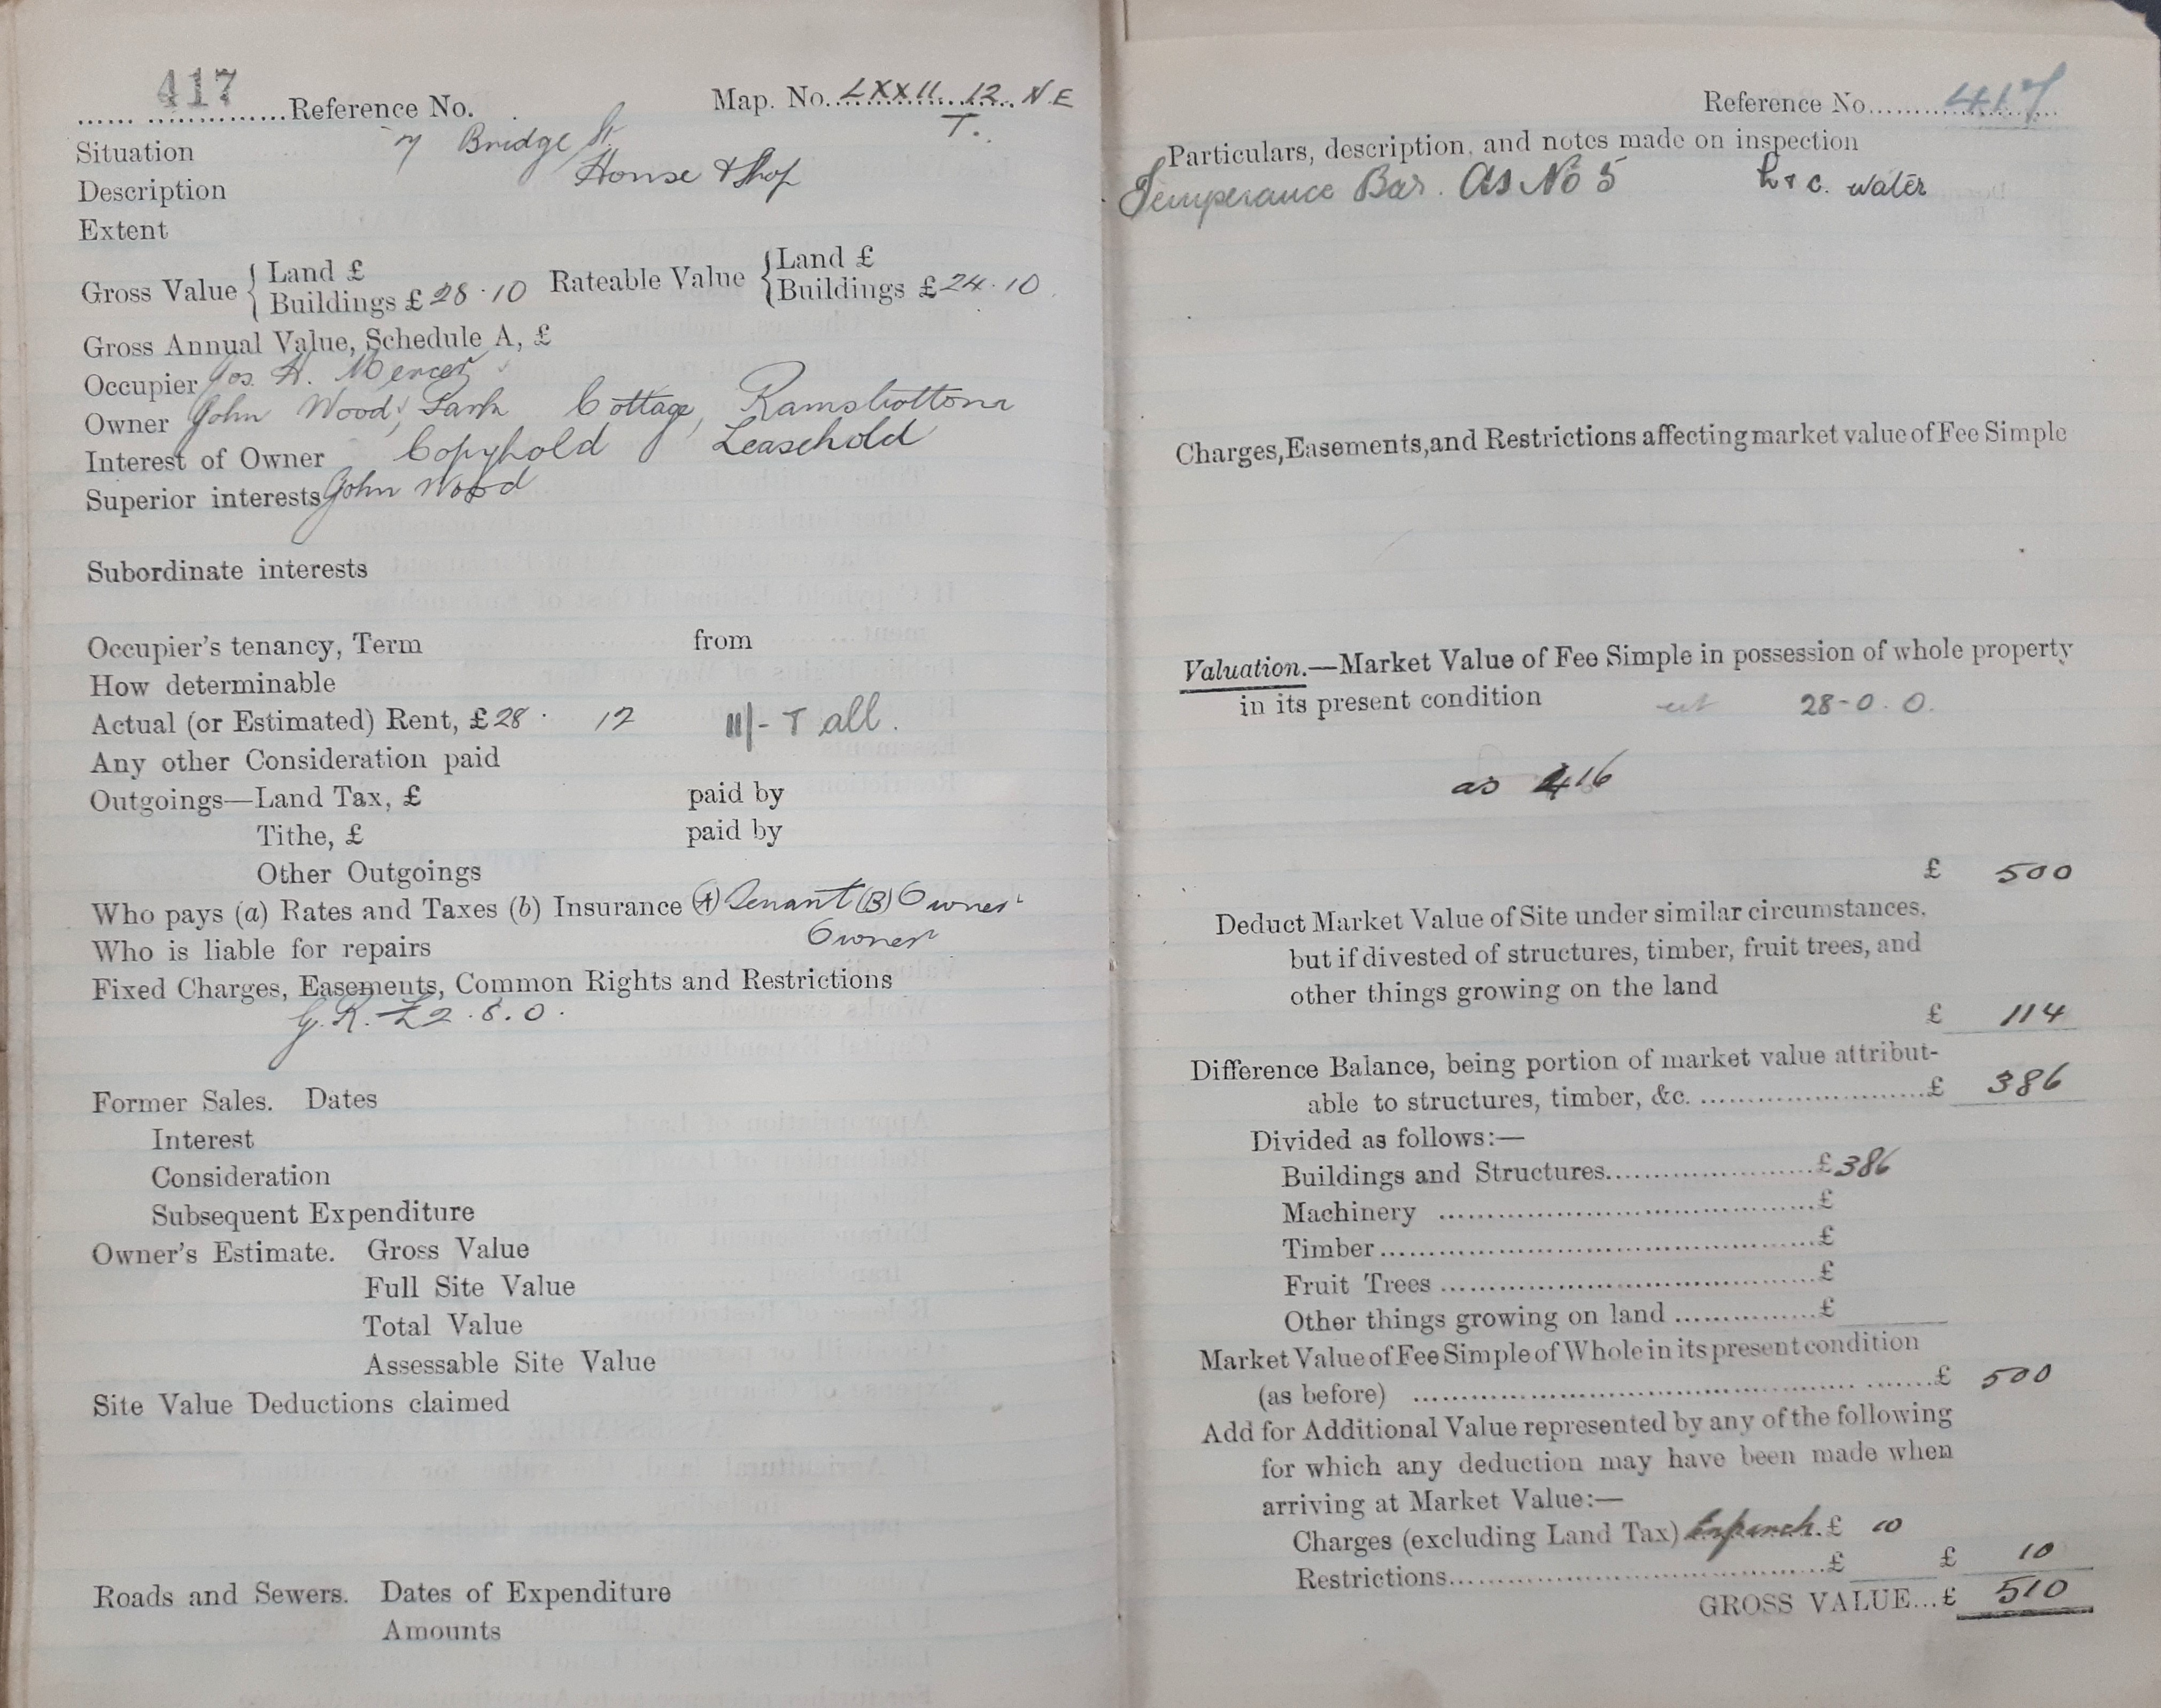 417
Reference No. Map. No. LXXII. 12. N.E
T.
Situation 7 Bridge St.
Description House & Shop
Extent
Gross Value { Land £
Buildings £ 28.10 Rateable Value { Land £
Buildings £ 24.10
Gross Annual Value, Schedule A, £
Occupier Jos. H. Mercer
Owner John Wood, Park Cottage, Ramsbottom
Interest of Owner Copyhold Leasehold
Superior interests John Wood
Subordinate interests
Occupier's tenancy, Term from
How determinable
Actual (or Estimated) Rent, £ 28. 12 11/- T all.
Any other Consideration paid
Outgoings—Land Tax, £ paid by
Tithe, £ paid by
Other Outgoings
Who pays (a) Rates and Taxes (b) Insurance (A) Tenant (B) Owner
Who is liable for repairs Owner
Fixed Charges, Easements, Common Rights and Restrictions
G.R. £2.8.0.
Former Sales. Dates
Interest
Consideration
Subsequent Expenditure
Owner's Estimate. Gross Value
Full Site Value
Total Value
Assessable Site Value
Site Value Deductions claimed
Roads and Sewers. Dates of Expenditure
Amounts
Reference No. 417
Particulars, description, and notes made on inspection
Temperance Bar. As No 5 h & c. water
Charges, Easements, and Restrictions affecting market value of Fee Simple
Valuation.—Market Value of Fee Simple in possession of whole property
in its present condition est 28-0.0.
as 416
£ 500
Deduct Market Value of Site under similar circumstances,
but if divested of structures, timber, fruit trees, and
other things growing on the land
£ 114
Difference Balance, being portion of market value attribut-
able to structures, timber, &c. £ 386
Divided as follows:—
Buildings and Structures £ 386
Machinery £
Timber £
Fruit Trees £
Other things growing on land £
Market Value of Fee Simple of Whole in its present condition
(as before) £ 500
Add for Additional Value represented by any of the following
for which any deduction may have been made when
arriving at Market Value:—
Charges (excluding Land Tax) £ 10
Restrictions £ £ 10
GROSS VALUE...£ 510